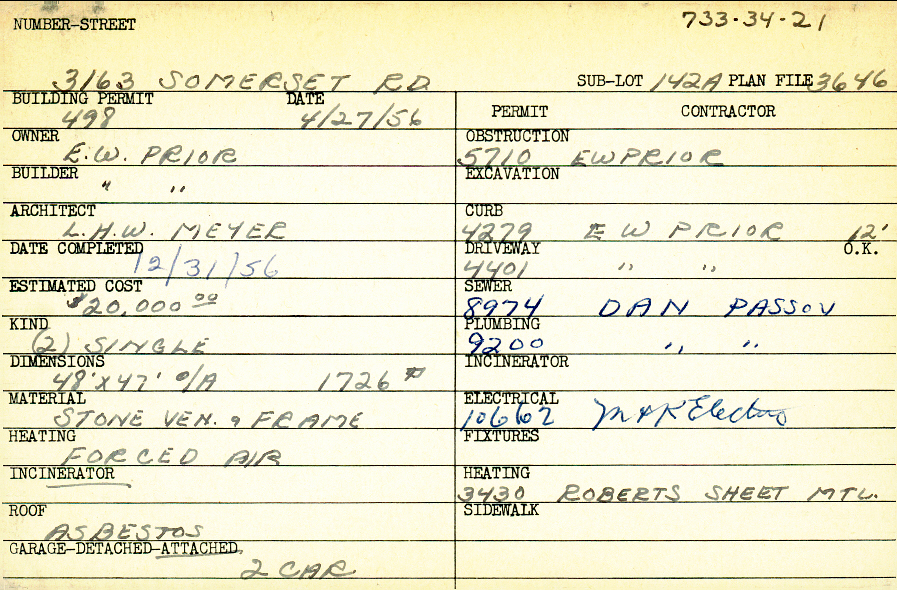 733-34-21
NUMBER-STREET
3163 SOMERSET RD. SUB-LOT 142A PLAN FILE 3646
BUILDING PERMIT DATE
498 4/27/56
OWNER
E.W. PRIOR
BUILDER
" "
ARCHITECT
L.H.W. MEYER
DATE COMPLETED
12/31/56
ESTIMATED COST
$20,000.00
KIND
(2) SINGLE
DIMENSIONS
48'X47' O/A 1726 #
MATERIAL
STONE VEN. & FRAME
HEATING
FORCED AIR
INCINERATOR
ROOF
ASBESTOS
GARAGE-DETACHED-ATTACHED
2 CAR
PERMIT CONTRACTOR
OBSTRUCTION
5710 EW PRIOR
EXCAVATION
CURB
4279 E W PRIOR 12'
DRIVEWAY O.K.
4401 " "
SEWER
8974 DAN PASSOV
PLUMBING
9200 " "
INCINERATOR
ELECTRICAL
106662 M & K Electric
FIXTURES
HEATING
3430 ROBERTS SHEET MTL.
SIDEWALK